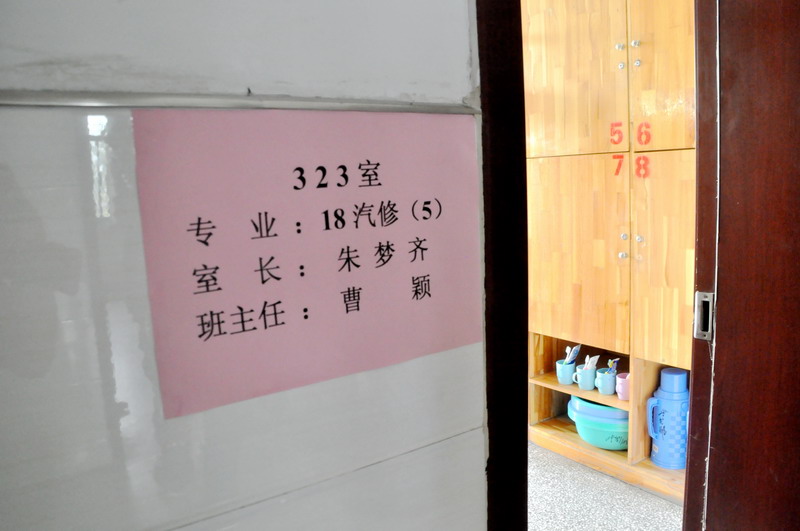 323室
专 业：18汽修（5）
室 长：朱梦齐
班主任：曹 颖
5 6
7 8